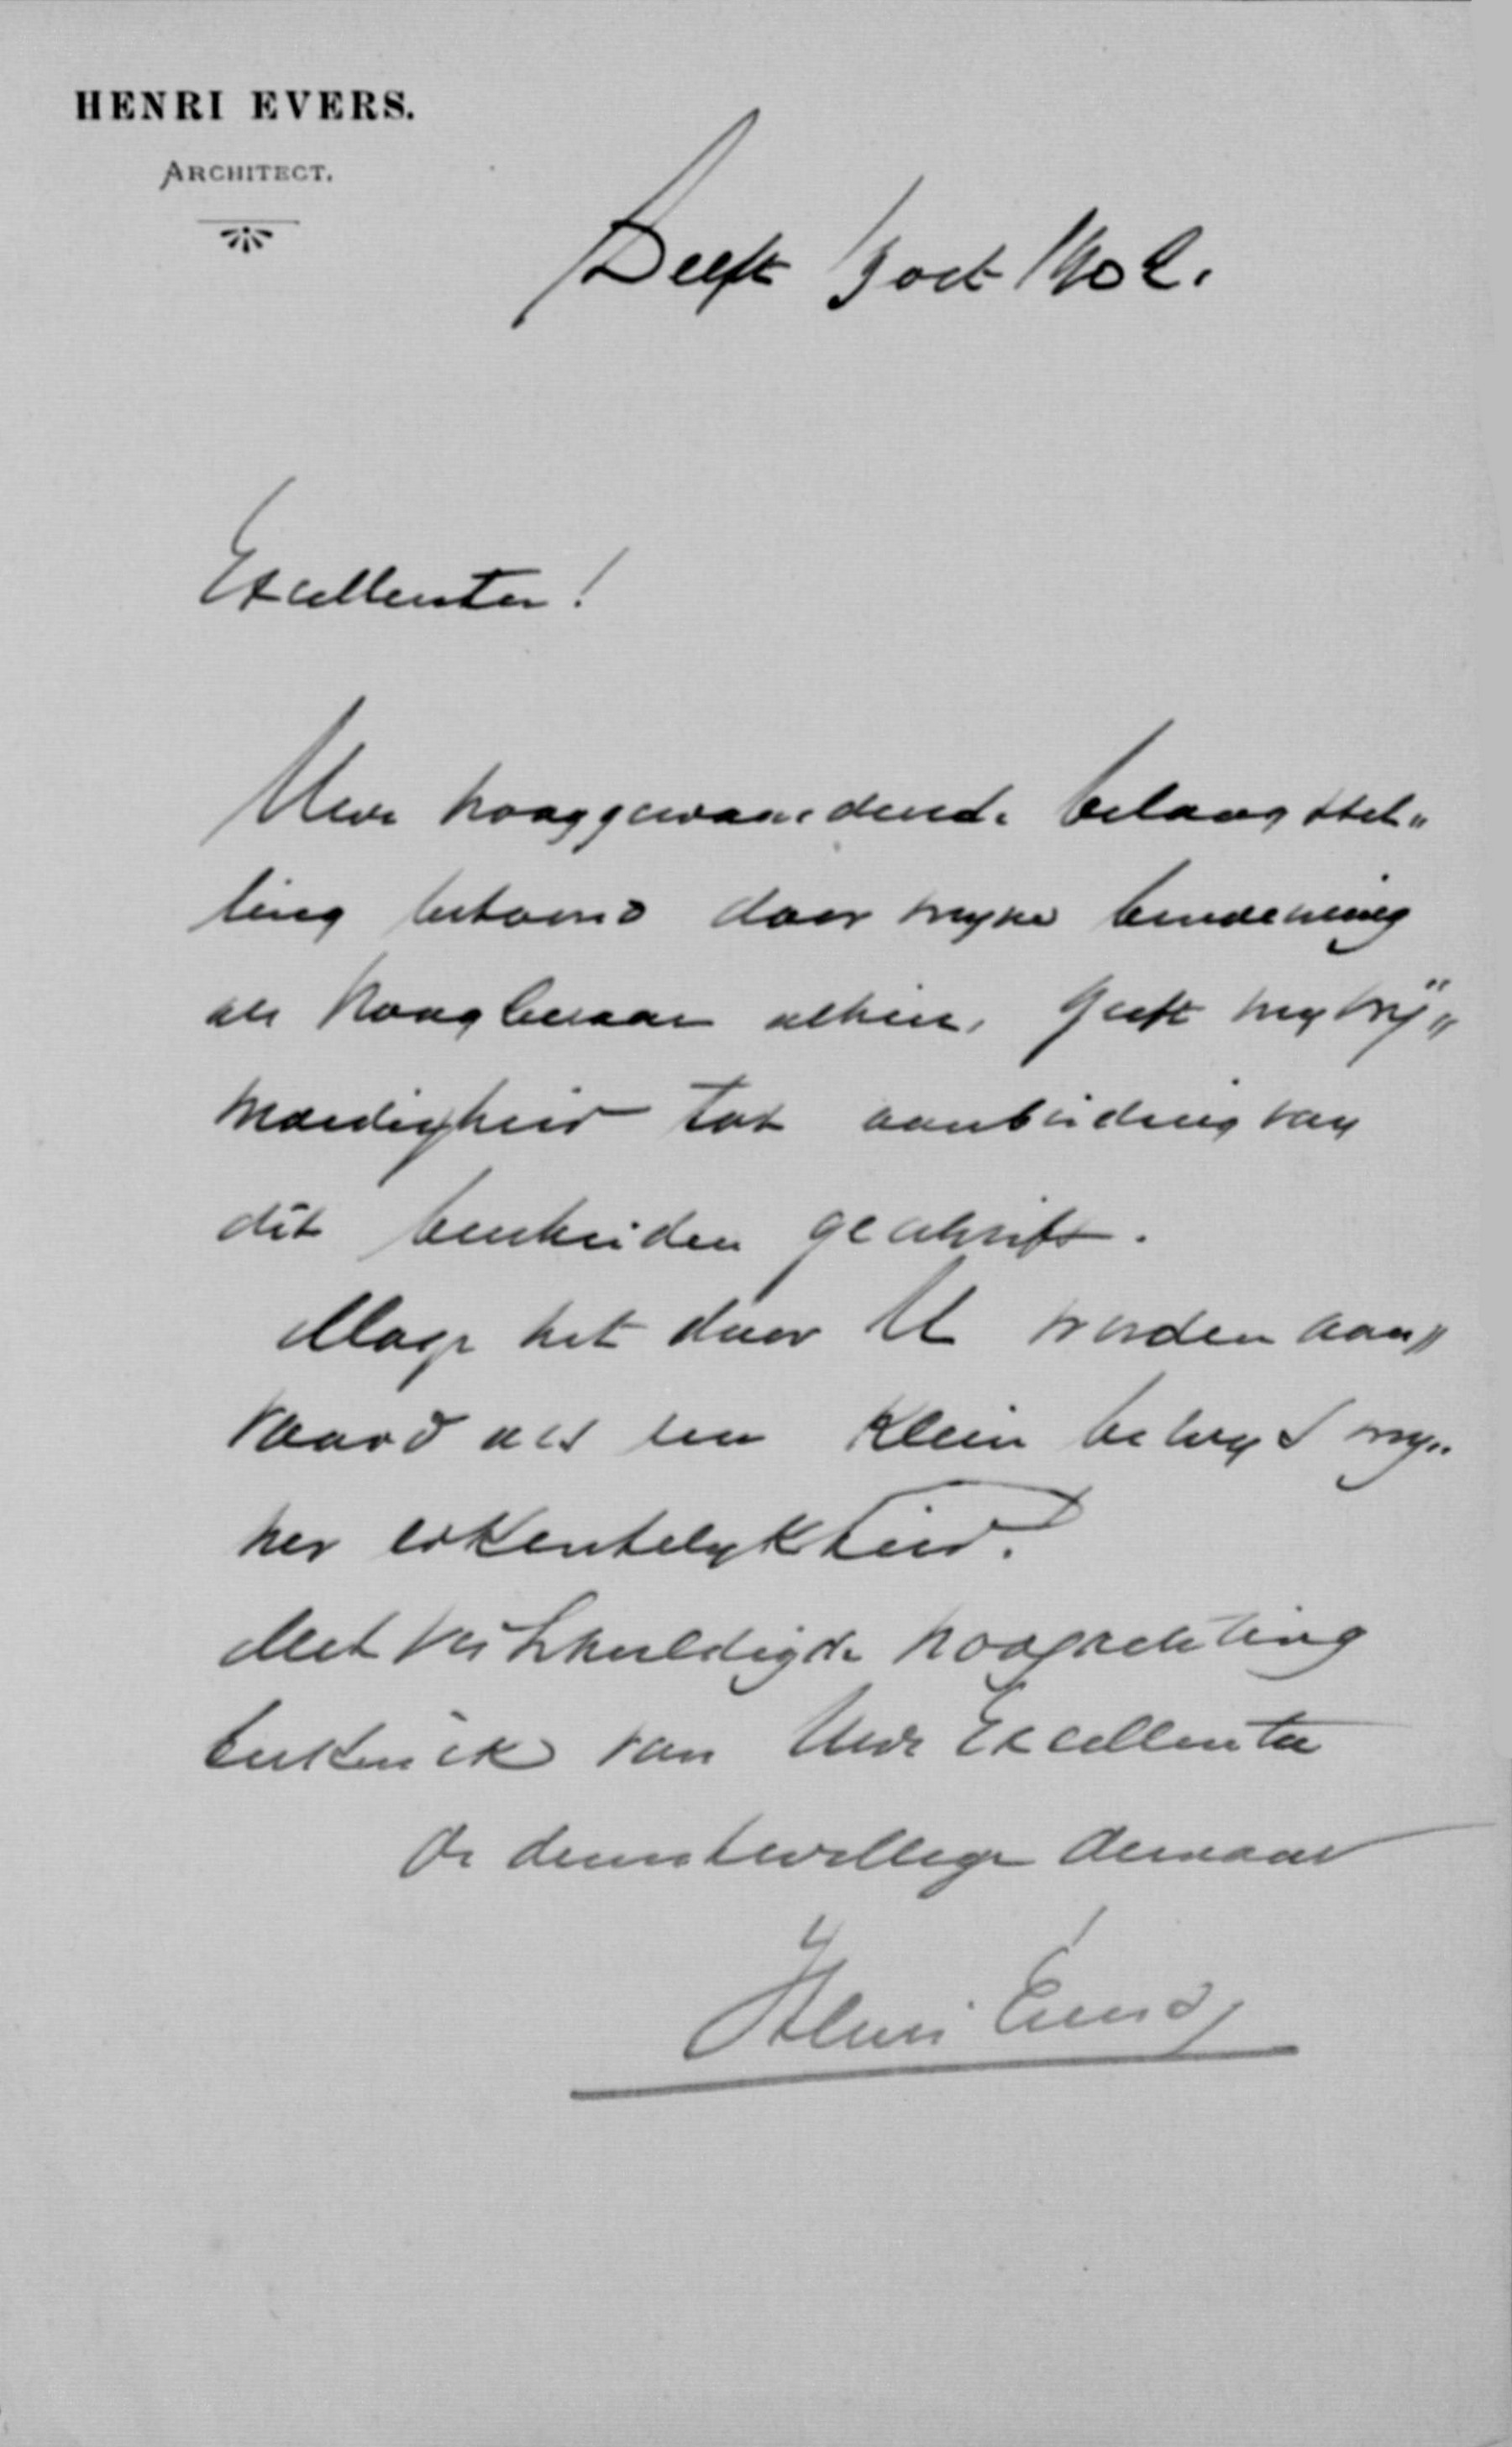 HENRI EVERS.
ARCHITECT.
Delft 3 oct 1902.
Excellentie!
Uwe hooggewaardeerde belangstel„
ling betoond door myne benoeming
als Hoogleeraar alhier, geeft my vrij„
moedigheid tot aanbieding van
dit bescheiden geschrift.
Moge het door U worden aan„
vaard als een klein bewys my„
ner erkentelykheid.
Met verschuldigde hoogachting
heb ik van Uwe Excellentie
de dienstwillige dienaar
Henri Evers